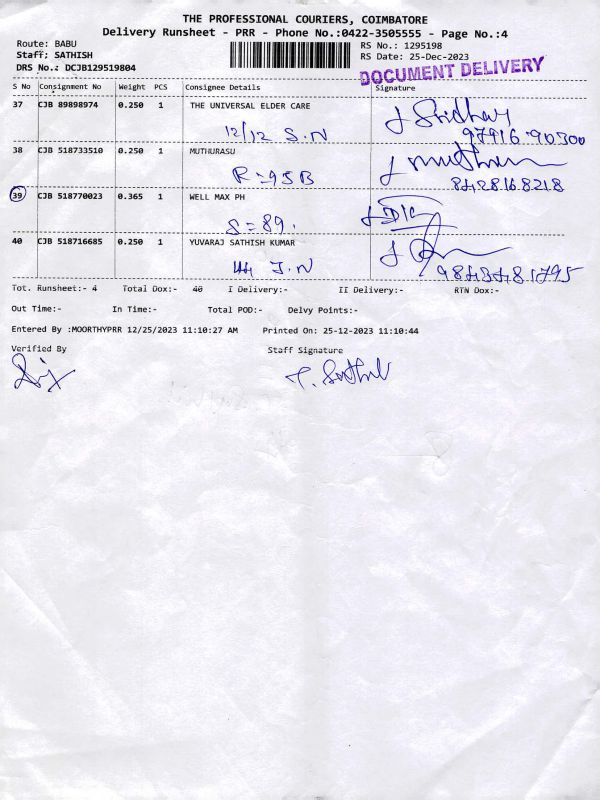 THE PROFESSIONAL COURIERS, COIMBATORE
Delivery Runsheet - PRR - Phone No.:0422-3505555 - Page No.:4
Route: BABU
Staff: SATHISH
DRS No.: DCJB129519804
RS No.: 1295198
RS Date: 25-Dec-2023
DOCUMENT DELIVERY
S No Consignment No Weight PCS Consignee Details Signature
37 CJB 89898974 0.250 1 THE UNIVERSAL ELDER CARE Sridhar
12/12 S.N 97916 90300
38 CJB 518733510 0.250 1 MUTHURASU
R=95B 8428168218
39 CJB 518770023 0.365 1 WELL MAX PH
S=89.
40 CJB 518716685 0.250 1 YUVARAJ SATHISH KUMAR
44 J.N
Tot. Runsheet:- 4 Total Dox:- 40 I Delivery:- II Delivery:- RTN Dox:-
Out Time:- In Time:- Total POD:- Delvy Points:-
Entered By :MOORTHYPRR 12/25/2023 11:10:27 AM Printed On: 25-12-2023 11:10:44
Verified By Staff Signature